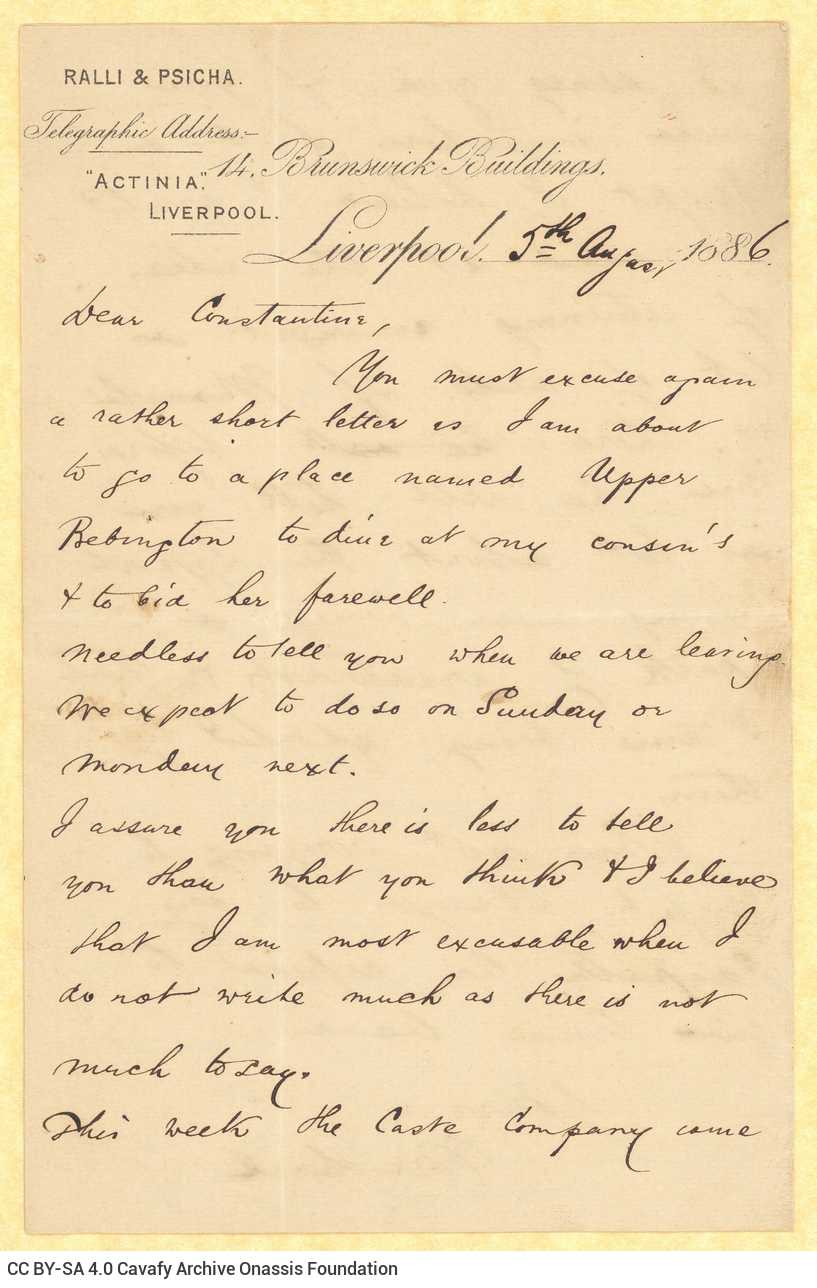 RALLI & PSICHA.
Telegraphic Address:-
"ACTINIA".
LIVERPOOL.
14, Brunswick Buildings,
Liverpool. 5th August 1886.
Dear Constantine,
You must excuse again
a rather short letter as I am about
to go to a place named Upper
Bebington to dine at my cousin's
& to bid her farewell.
Needless to tell you when we are leaving.
We expect to do so on Sunday or
Monday next.
I assure you there is less to tell
you than what you think & I believe
that I am most excusable when I
do not write much as there is not
much to say.
This week the Caste Company came
CC BY-SA 4.0 Cavafy Archive Onassis Foundation